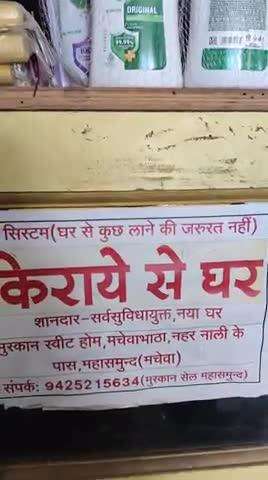 ORIGINAL
99.99%
सिस्टम(घर से कुछ लाने की जरुरत नहीं)
किराये से घर
शानदार-सर्वसुविधायुक्त,नया घर
मुस्कान स्वीट होम,मचेवाभाठा,नहर नाली के
पास,महासमुन्द(मचेवा)
संपर्क: 9425215634(मुस्कान सेल महासमुन्द)